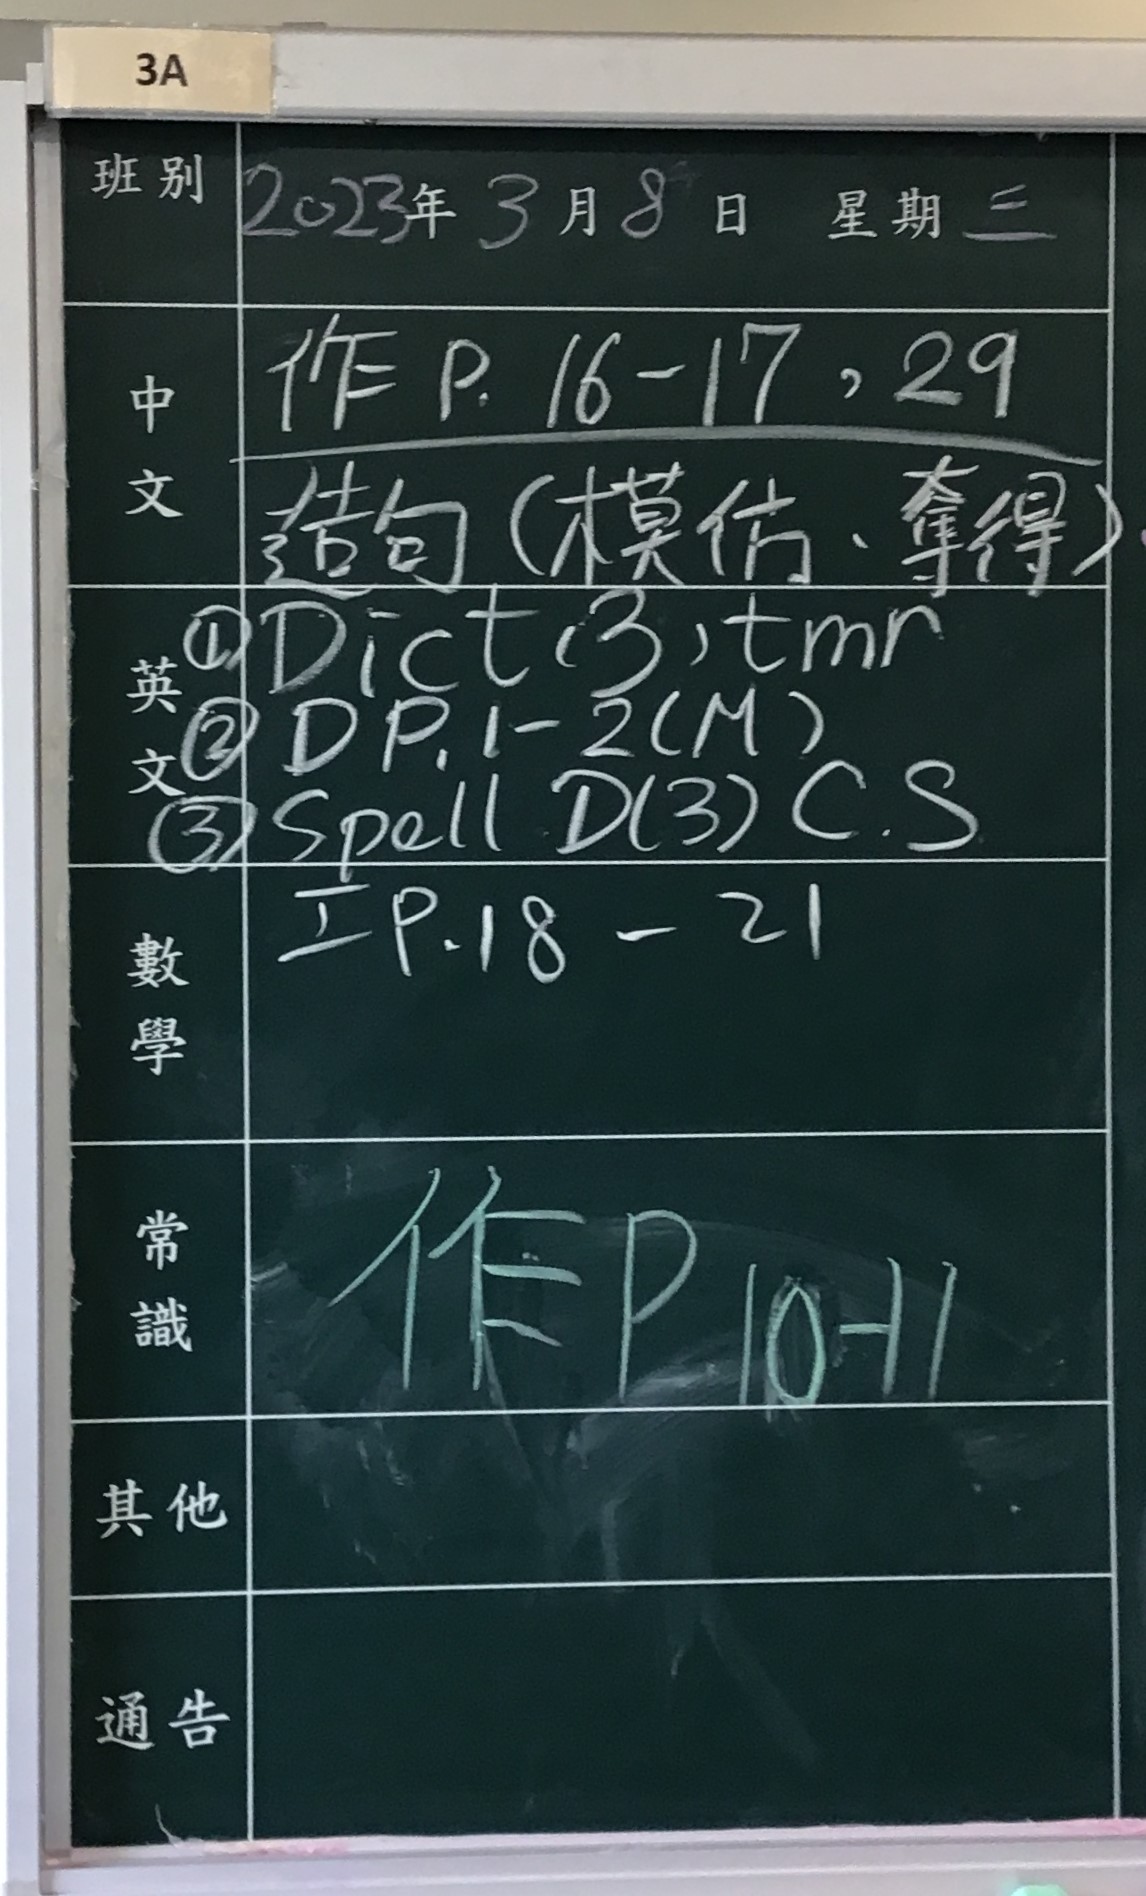 3A
班別 2023年 3月8日 星期三
中文 作 P. 16-17，29
造句（模仿、奪得）
英文 ① Dict (3) tmr
② D P. 1-2 (M)
③ Spell D(3) C.S
數學 工 P.18 - 21
常識 作 P 10-11
其他
通告